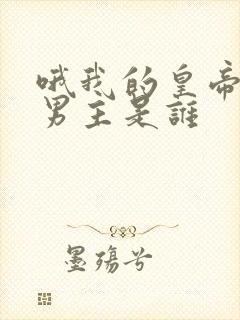 哦我的皇帝
男主是誰
墨殤兮